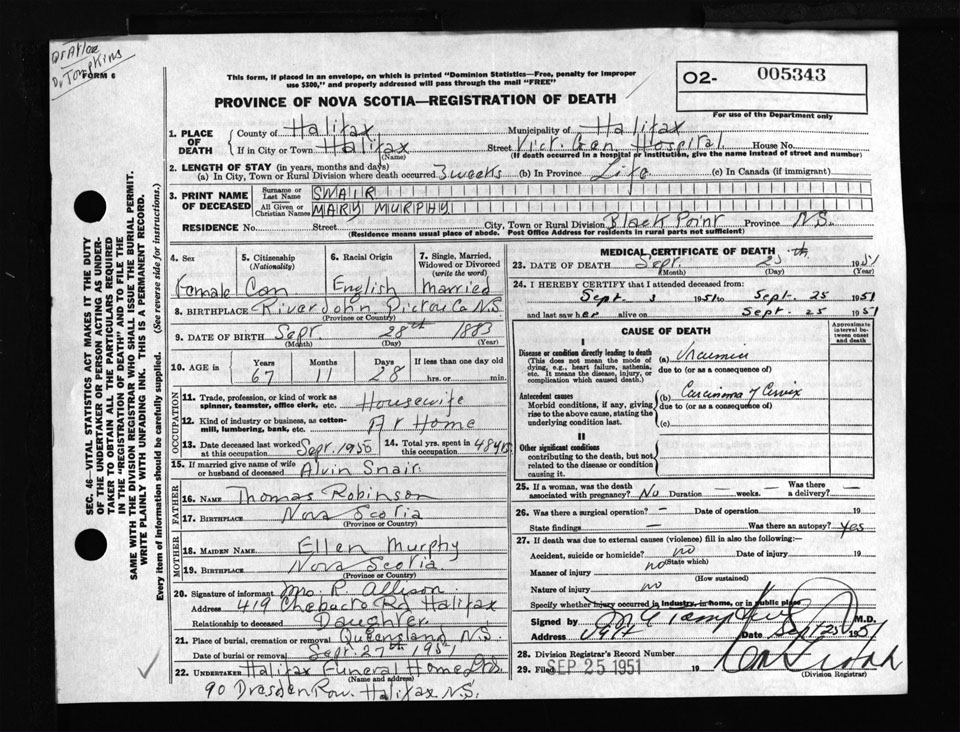 Dr Atlee
Dr Tompkins
FORM 6
This form, if placed in an envelope, on which is printed "Dominion Statistics—Free, penalty for improper
use $300," and properly addressed will pass through the mail "FREE"
PROVINCE OF NOVA SCOTIA—REGISTRATION OF DEATH
O2- 005343
For use of the Department only
SEC. 46—VITAL STATISTICS ACT MAKES IT THE DUTY
OF THE UNDERTAKER OR PERSON ACTING AS UNDER-
TAKER TO OBTAIN ALL THE PARTICULARS REQUIRED
IN THE "REGISTRATION OF DEATH" AND TO FILE THE
SAME WITH THE DIVISION REGISTRAR WHO SHALL ISSUE THE BURIAL PERMIT.
WRITE PLAINLY WITH UNFADING INK. THIS IS A PERMANENT RECORD.
Every item of information should be carefully supplied. (See reverse side for instructions.)
1. PLACE OF DEATH County of Halifax Municipality of Halifax
If in City or Town Halifax (Name) Street Vict. Gen. Hospital House No.
(If death occurred in a hospital or institution, give the name instead of street and number)
2. LENGTH OF STAY (in years, months and days)
(a) In City, Town or Rural Division where death occurred 3 weeks (b) In Province Life (c) In Canada (if immigrant)
3. PRINT NAME OF DECEASED Surname or Last Name SNAIR
All Given or Christian Names MARY MURPHY
RESIDENCE No. Street City, Town or Rural Division Black Point Province N.S.
(Residence means usual place of abode. Post Office Address for residents in rural parts not sufficient)
4. Sex 5. Citizenship (Nationality) 6. Racial Origin 7. Single, Married, Widowed or Divorced (write the word)
Female Can English Married
8. BIRTHPLACE River John Pictou Co N.S.
(Province or Country)
9. DATE OF BIRTH Sept 28th 1883
(Month) (Day) (Year)
10. AGE in Years Months Days If less than one day old
67 11 28 hrs. or min.
OCCUPATION
11. Trade, profession, or kind of work as
spinner, teamster, office clerk, etc. Housewife
12. Kind of industry or business, as cotton-
mill, lumbering, bank, etc. At Home
13. Date deceased last worked
at this occupation Sept. 1950 14. Total yrs. spent in
this occupation 48 yrs
15. If married give name of wife
or husband of deceased Alvin Snair
FATHER
16. NAME Thomas Robinson
17. BIRTHPLACE Nova Scotia
(Province or Country)
MOTHER
18. MAIDEN NAME Ellen Murphy
19. BIRTHPLACE Nova Scotia
(Province or Country)
20. Signature of informant Mrs. R. Allison
Address 419 Chebucto Rd Halifax
Relationship to deceased Daughter
21. Place of burial, cremation or removal Queensland N.S.
Date of burial or removal Sept. 27th 1951
22. UNDERTAKER Halifax Funeral Home
(Name and address)
90 Dresden Row. Halifax N.S.
MEDICAL CERTIFICATE OF DEATH
23. DATE OF DEATH Sept 25 th 1951
(Month) (Day) (Year)
24. I HEREBY CERTIFY that I attended deceased from:
Sept 3 1951 to Sept. 25 1951
and last saw her alive on Sept. 25 1951
CAUSE OF DEATH
Approximate interval between onset and death
I
Disease or condition directly leading to death (a) Uraemia
(This does not mean the mode of dying, e.g., heart failure, asthenia, etc. It means the disease, injury, or complication which caused death.)
due to (or as a consequence of)
Antecedent causes (b) Carcinoma of Cervix
Morbid conditions, if any, giving rise to the above cause, stating the underlying condition last.
due to (or as a consequence of)
(c)
II
Other significant conditions
contributing to the death, but not related to the disease or condition causing it.
25. If a woman, was the death
associated with pregnancy? No Duration — weeks. Was there a delivery? —
26. Was there a surgical operation? — Date of operation 19
State findings — Was there an autopsy? Yes
27. If death was due to external causes (violence) fill in also the following:—
Accident, suicide or homicide? no Date of injury 19
(State which)
Manner of injury no
(How sustained)
Nature of injury no
Specify whether injury occurred in industry, in home, or in public place
Signed by M.D.
Address Date Sept 25 1951
28. Division Registrar's Record Number
29. Filed SEP 25 1951 19
(Division Registrar)